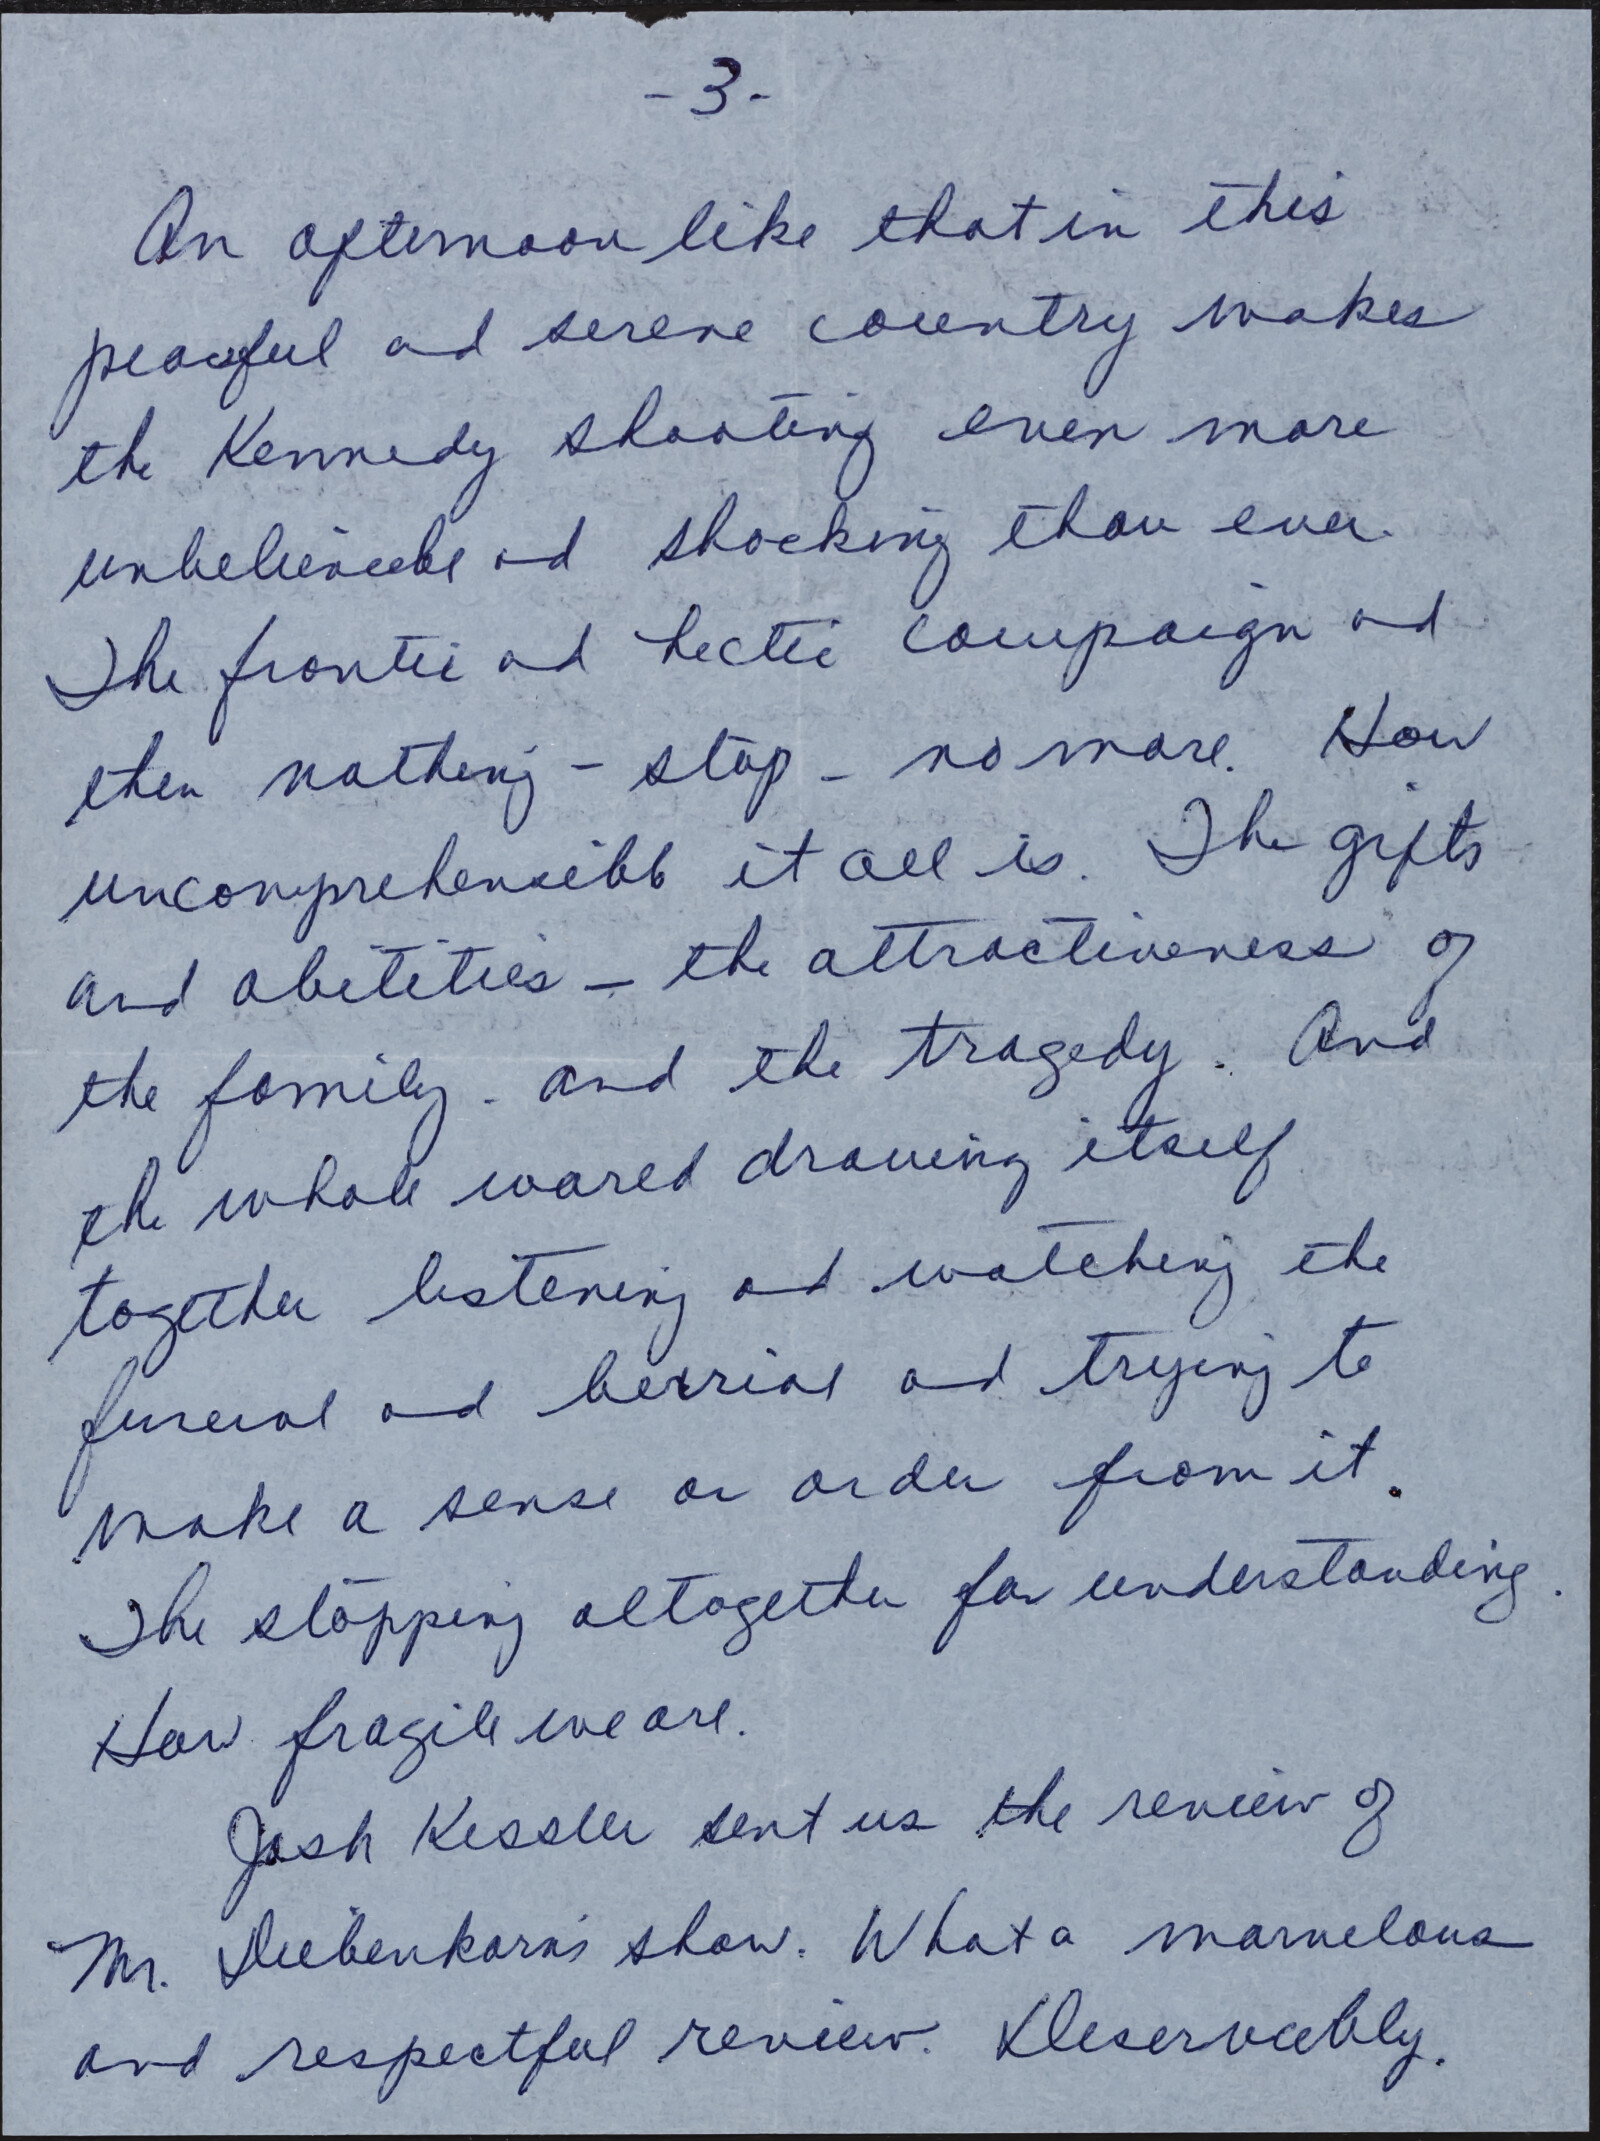 -3-
An afternoon like that in this
peaceful and serene country makes
the Kennedy shooting even more
unbelievable and shocking than ever.
The frantic and hectic campaign and
then nothing - stop - no more. How
uncomprehensible it all is. The gifts
and abilities - the attractiveness of
the family - and the tragedy. And
the whole world drawing itself
together listening and watching the
funeral and burrial and trying to
make a sense or order from it.
The stopping altogether for understanding.
How fragile we are.
Josh Kessler sent us the review of
Mr. Diebenkorn's show. What a marvelous
and respectful review. Deservably.